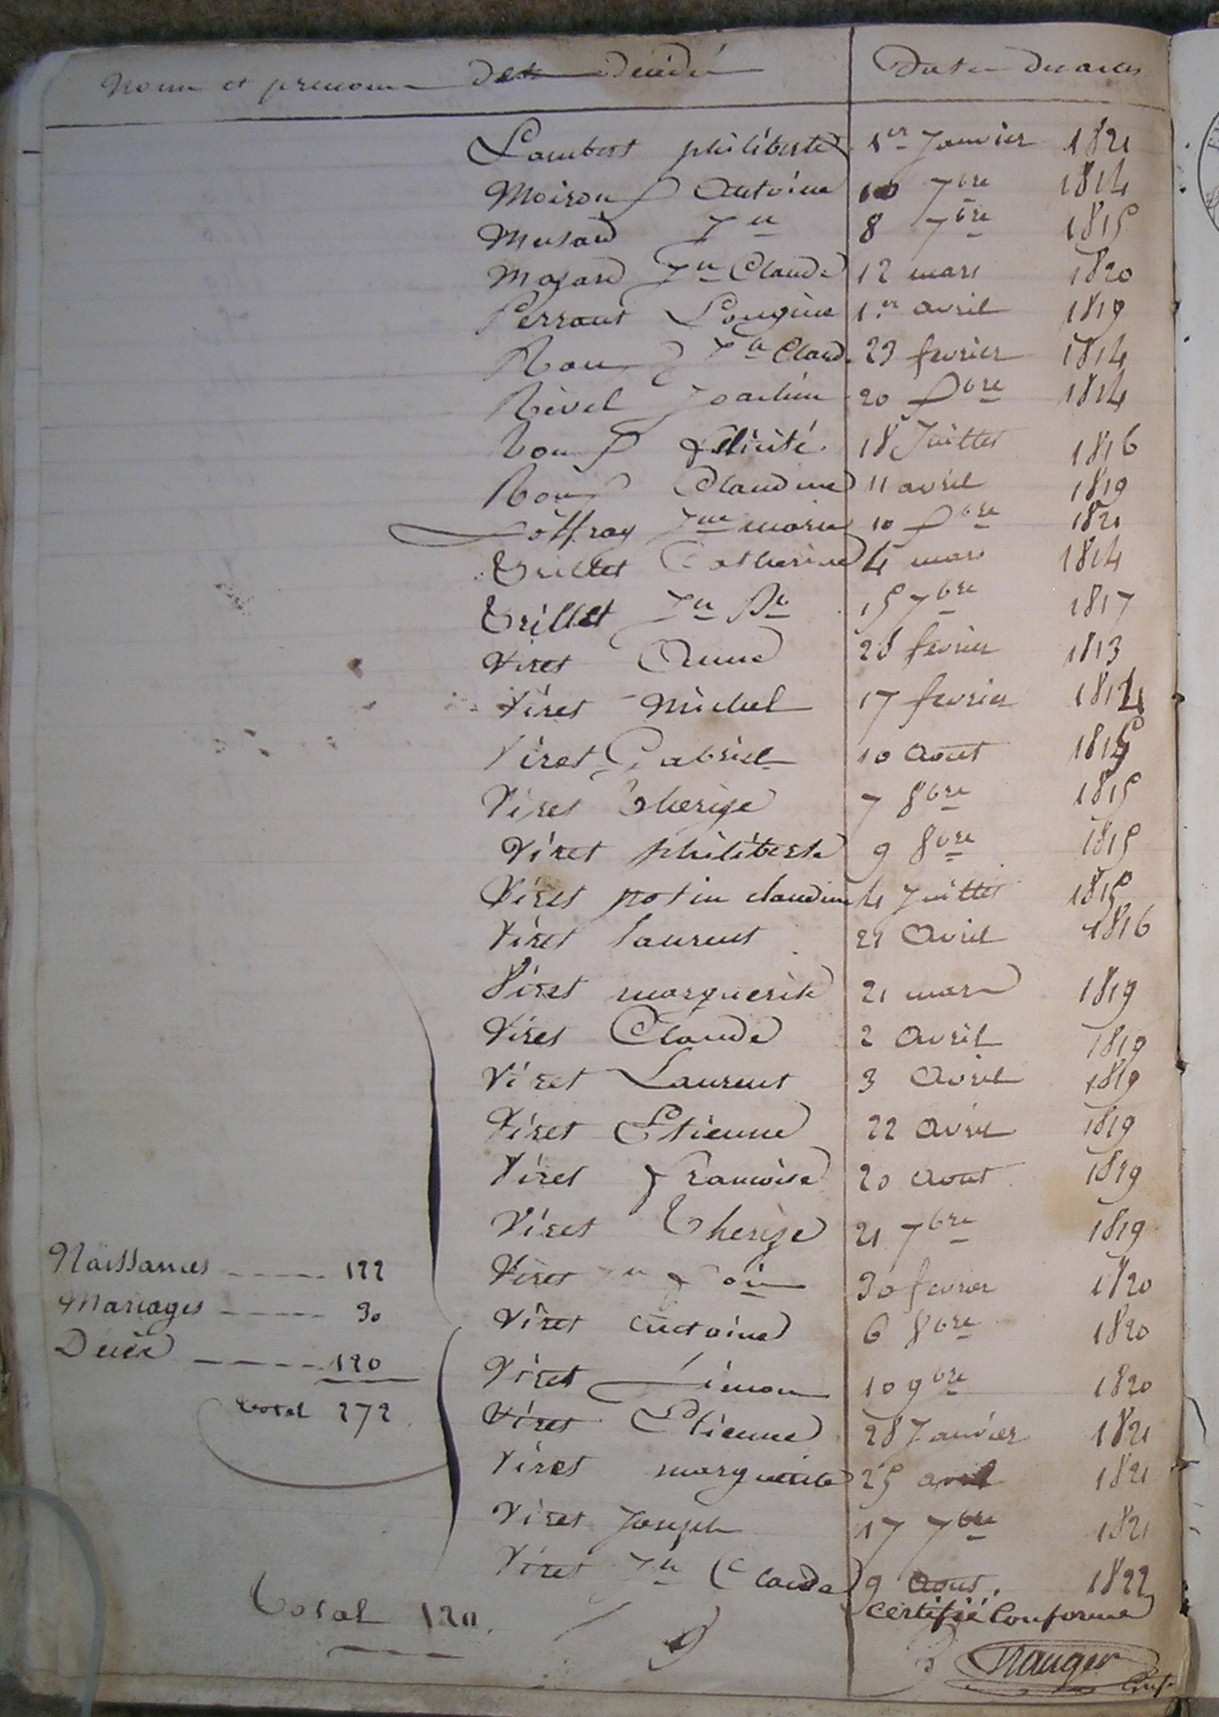 Noms et prenoms des décédés Date des actes
Lambert philiberte 1er Janvier 1821
Moiroux Antoine 10 7bre 1814
Musard Jn 8 7bre 1815
Jn Claude 12 mars 1820
Perraut Longine 1er avril 1819
Roux Jn Claude 23 fevrier 1814
Revel Joachim 20 1814
Roux félicité 18 Juillet 1816
Roux Claudine 11 avril 1819
Joffray marie 10 1821
Trillet Catherine 4 mars 1814
Trillet Jn Bte 15 7bre 1817
Viret Anne 28 fevrier 1813
Viret Michel 17 fevrier 1814
Viret Gabriel 10 Aout 1815
Viret Therèse 7 8bre 1815
Viret philiberte 9 8bre 1815
Viret claudine 4 Juillet 1815
Viret laurent 21 Avril 1816
Viret marguerite 21 mars 1819
Viret Claude 2 Avril 1819
Viret Laurent 3 Avril 1819
Viret Etienne 22 Avril 1819
Viret francoise 20 Aout 1819
Viret Therèse 21 7bre 1819
Viret Jn 30 fevrier 1820
Viret Antoine 6 8bre 1820
Viret Simon 10 9bre 1820
Viret Etienne 28 Janvier 1821
Viret marguerite 25 avril 1821
Viret Joseph 17 7bre 1821
Viret Jn Claude 9 Aout. 1822
Naissances ---- 122
Mariages ---- 30
Décès ---- 120
total 272
Total 120.
Certifié Conforme